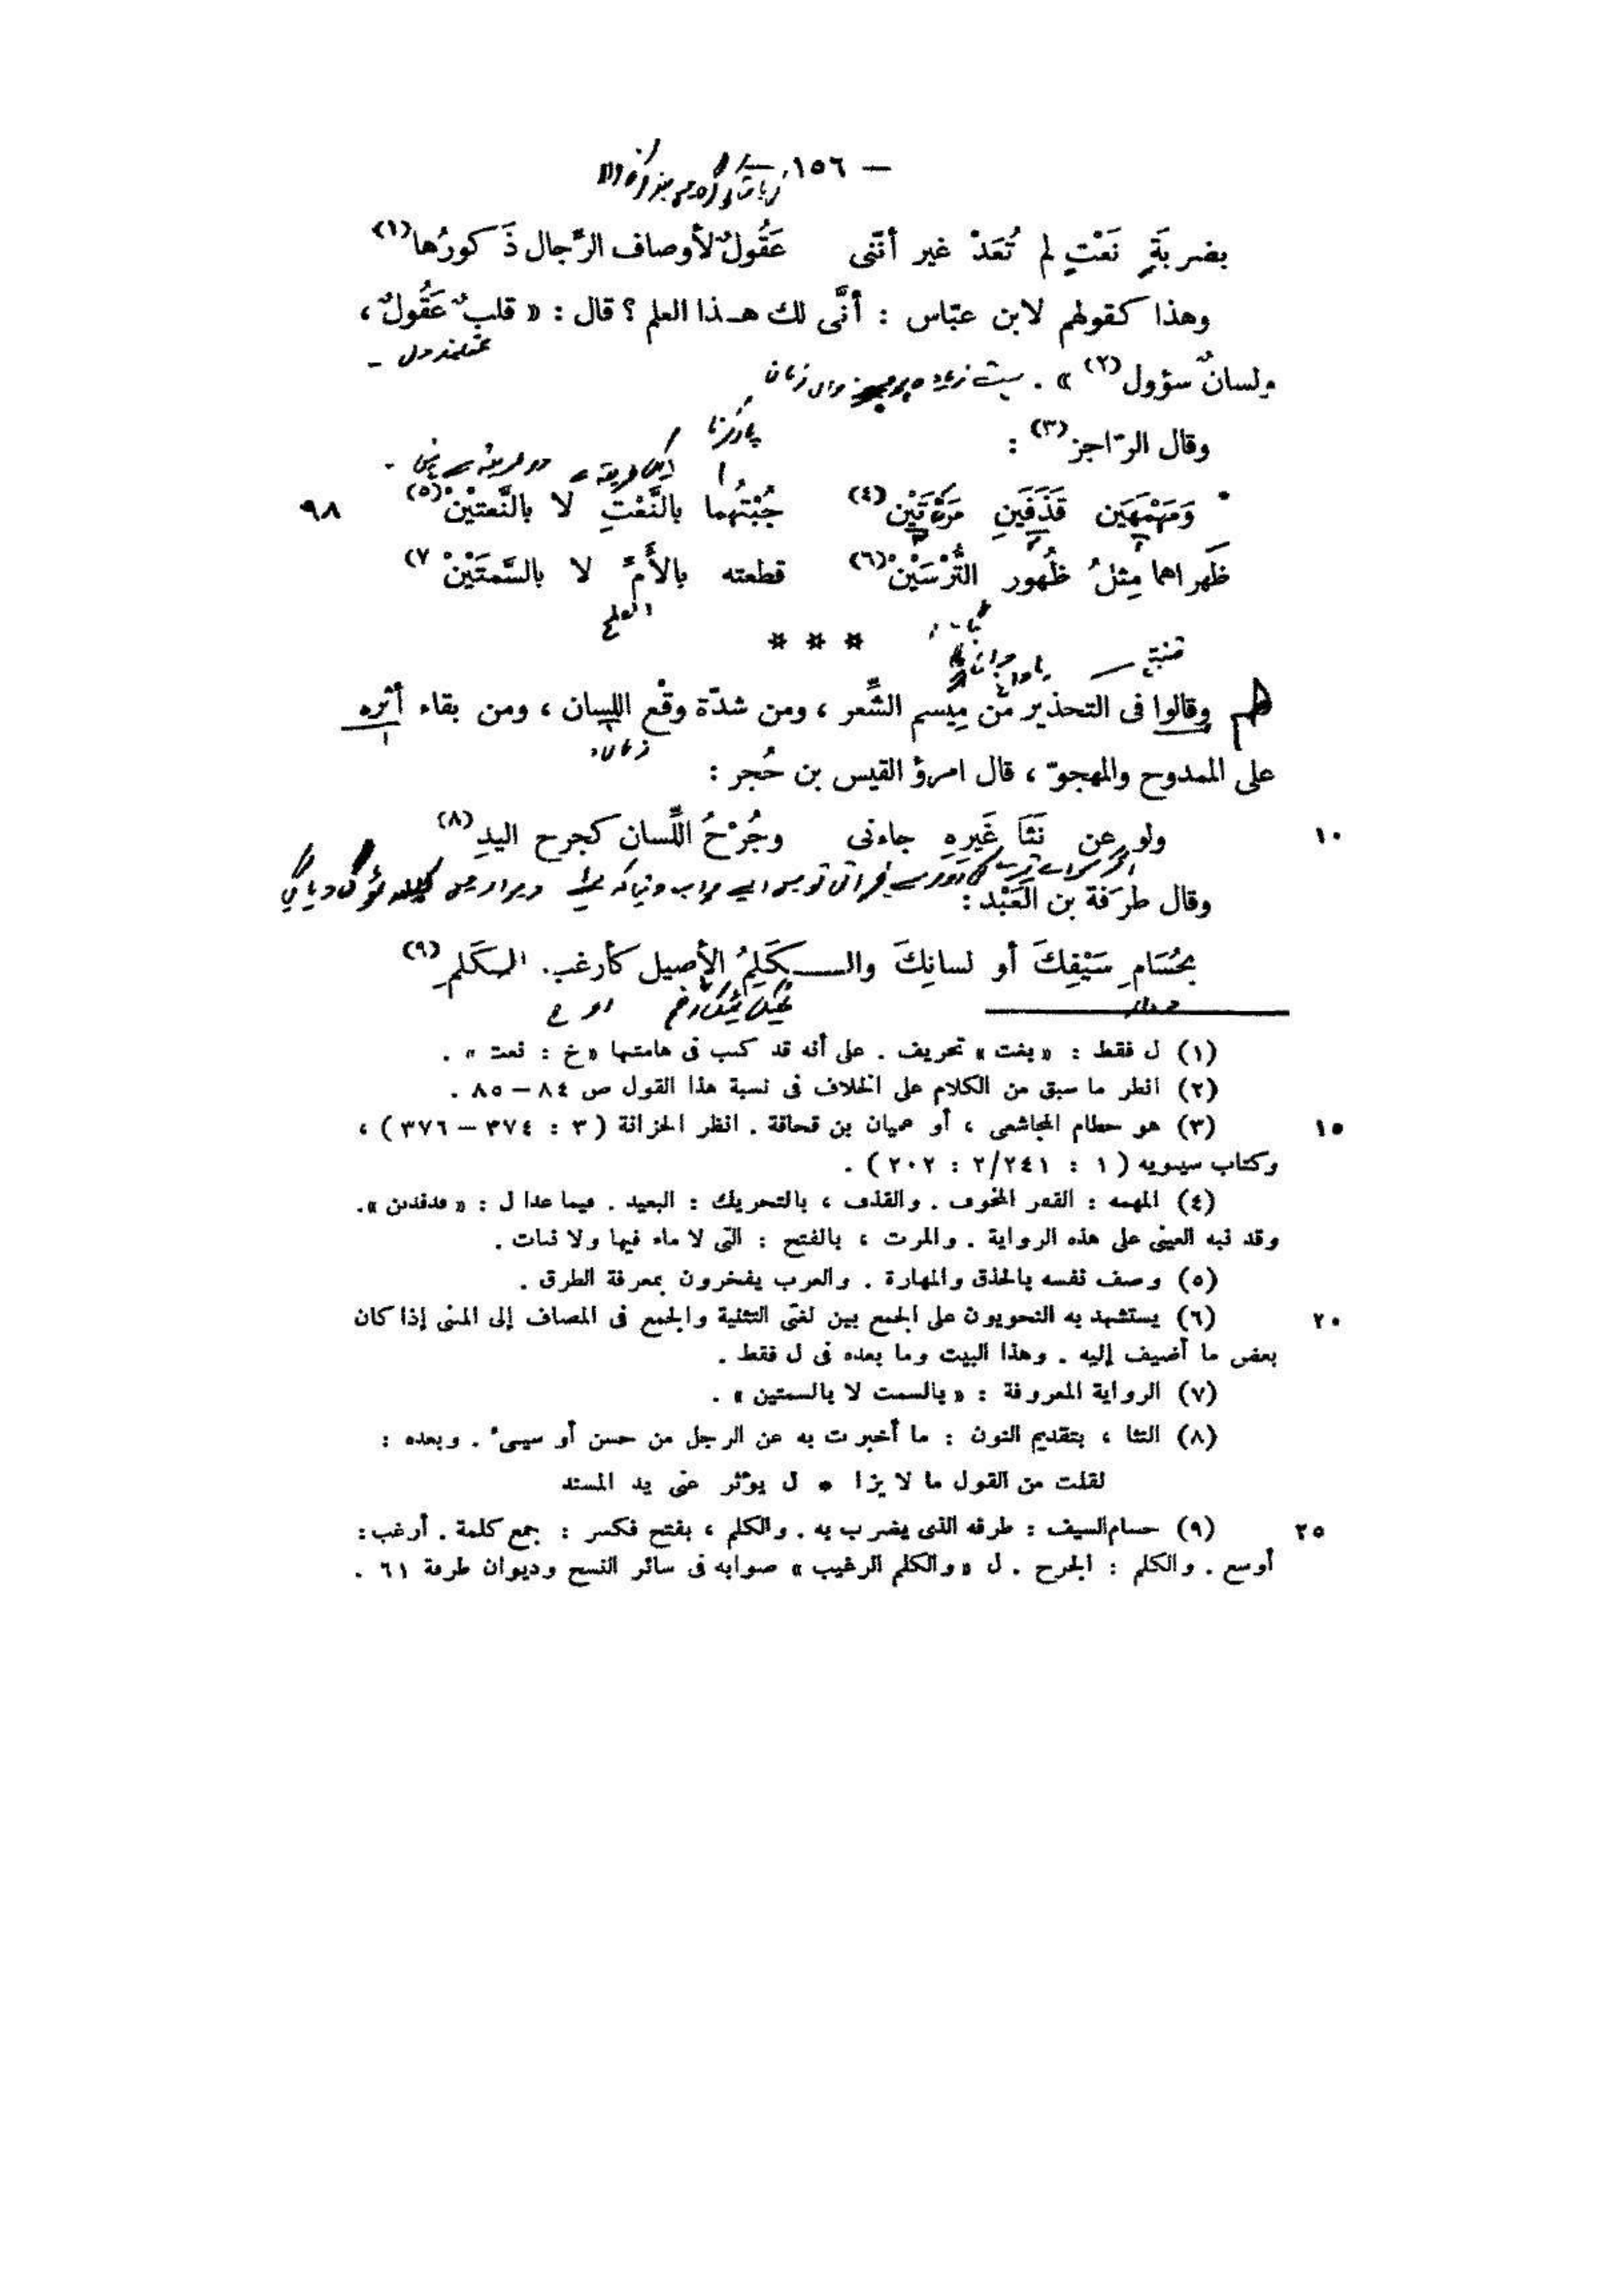 — ١٥٦
بضربَةِ نَعْتٍ لم تُعَدْ غير أنّنى عَقُولٌ لأوصاف الرِّجال ذَكورُها (١)
وهذا كقولهم لابن عبّاس : أنَّى لك هـذا العلم ؟ قال : « قلبٌ عَقُولٌ ،
عقلمند دل -
ولسانٌ سؤول (٢) » .
وقال الرّاجز (٣) :
* وَمَهْمَهَين قَذَفَينِ مَرْتَيْن (٤) جُبْتُهما بالنَّعْتِ لا بالنَّعتيْنْ (٥) ٩٨
ظَهراهما مِثلُ ظُهور التُّرْسَيْنْ (٦) قطعته بالأَمِّ لا بالسَّمتَيْنْ ٧)
* * *
وقالوا فى التحذير من مِيْسم الشِّعر ، ومن شدّة وقْع اللسان ، ومن بقاء أثره
زبان
على الممدوح والمهجوّ ، قال امرؤ القيس بن حُجر :
ولو عن نَثَا غَيرِهِ جاءنى وجُرْحُ اللِّسان كجرح اليدِ (٨) ١٠
وقال طرَفة بن العَبْد :
بحُسَامِ سَيْفِكَ أو لسانِكَ والـــكَلِمُ الأصيل كأرغب. الـكَلمِ (٩)
(١) ل فقط : « بغت » تحريف . على أنه قد كتب فى هامشها « خ : نعت » .
(٢) انظر ما سبق من الكلام على الخلاف فى نسبة هذا القول ص ٨٤ — ٨٥ .
(٣) هو خطام المجاشعى ، أو هميان بن قحافة . انظر الخزانة ( ٣ : ٣٧٤ — ٣٧٦ ) ، ١٥
وكتاب سيبويه ( ١ : ٢/٢٤١ : ٢٠٢ ) .
(٤) المهمه : القفر المخوف . والقذف ، بالتحريك : البعيد . فيما عدا ل : « فدفدين ».
وقد نبه العينى على هذه الرواية . والمرت ، بالفتح : التى لا ماء فيها ولا نبات .
(٥) وصف نفسه بالحذق والمهارة . والعرب يفخرون بمعرفة الطرق .
(٦) يستشهد به النحويون على الجمع بين لغتى التثنية والجمع فى المضاف إلى المثنى إذا كان ٢٠
بعض ما أضيف إليه . وهذا البيت وما بعده فى ل فقط .
(٧) الرواية المعروفة : « بالسمت لا بالسمتين » .
(٨) النثا ، بتقديم النون : ما أخبرت به عن الرجل من حسن أو سيىء . وبعده :
لقلت من القول ما لا يزا * ل يؤثر عنى يد المسند
(٩) حسام السيف : طرفه الذى يضرب به . والكلم ، بفتح فكسر : جمع كلمة . أرغب : ٢٥
أوسع . والكلم : الجرح . ل « والكلم الرغيب » صوابه فى سائر النسخ وديوان طرفة ٦١ .